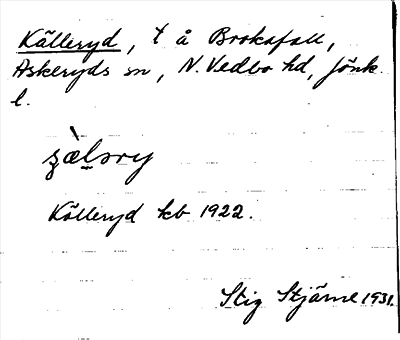 Källeryd, t å Brokafall,
Askeryds sn, N. Vedbo hd, Jönk.
l.
Källeryd kb 1922.
Stig Stjärne 1931.